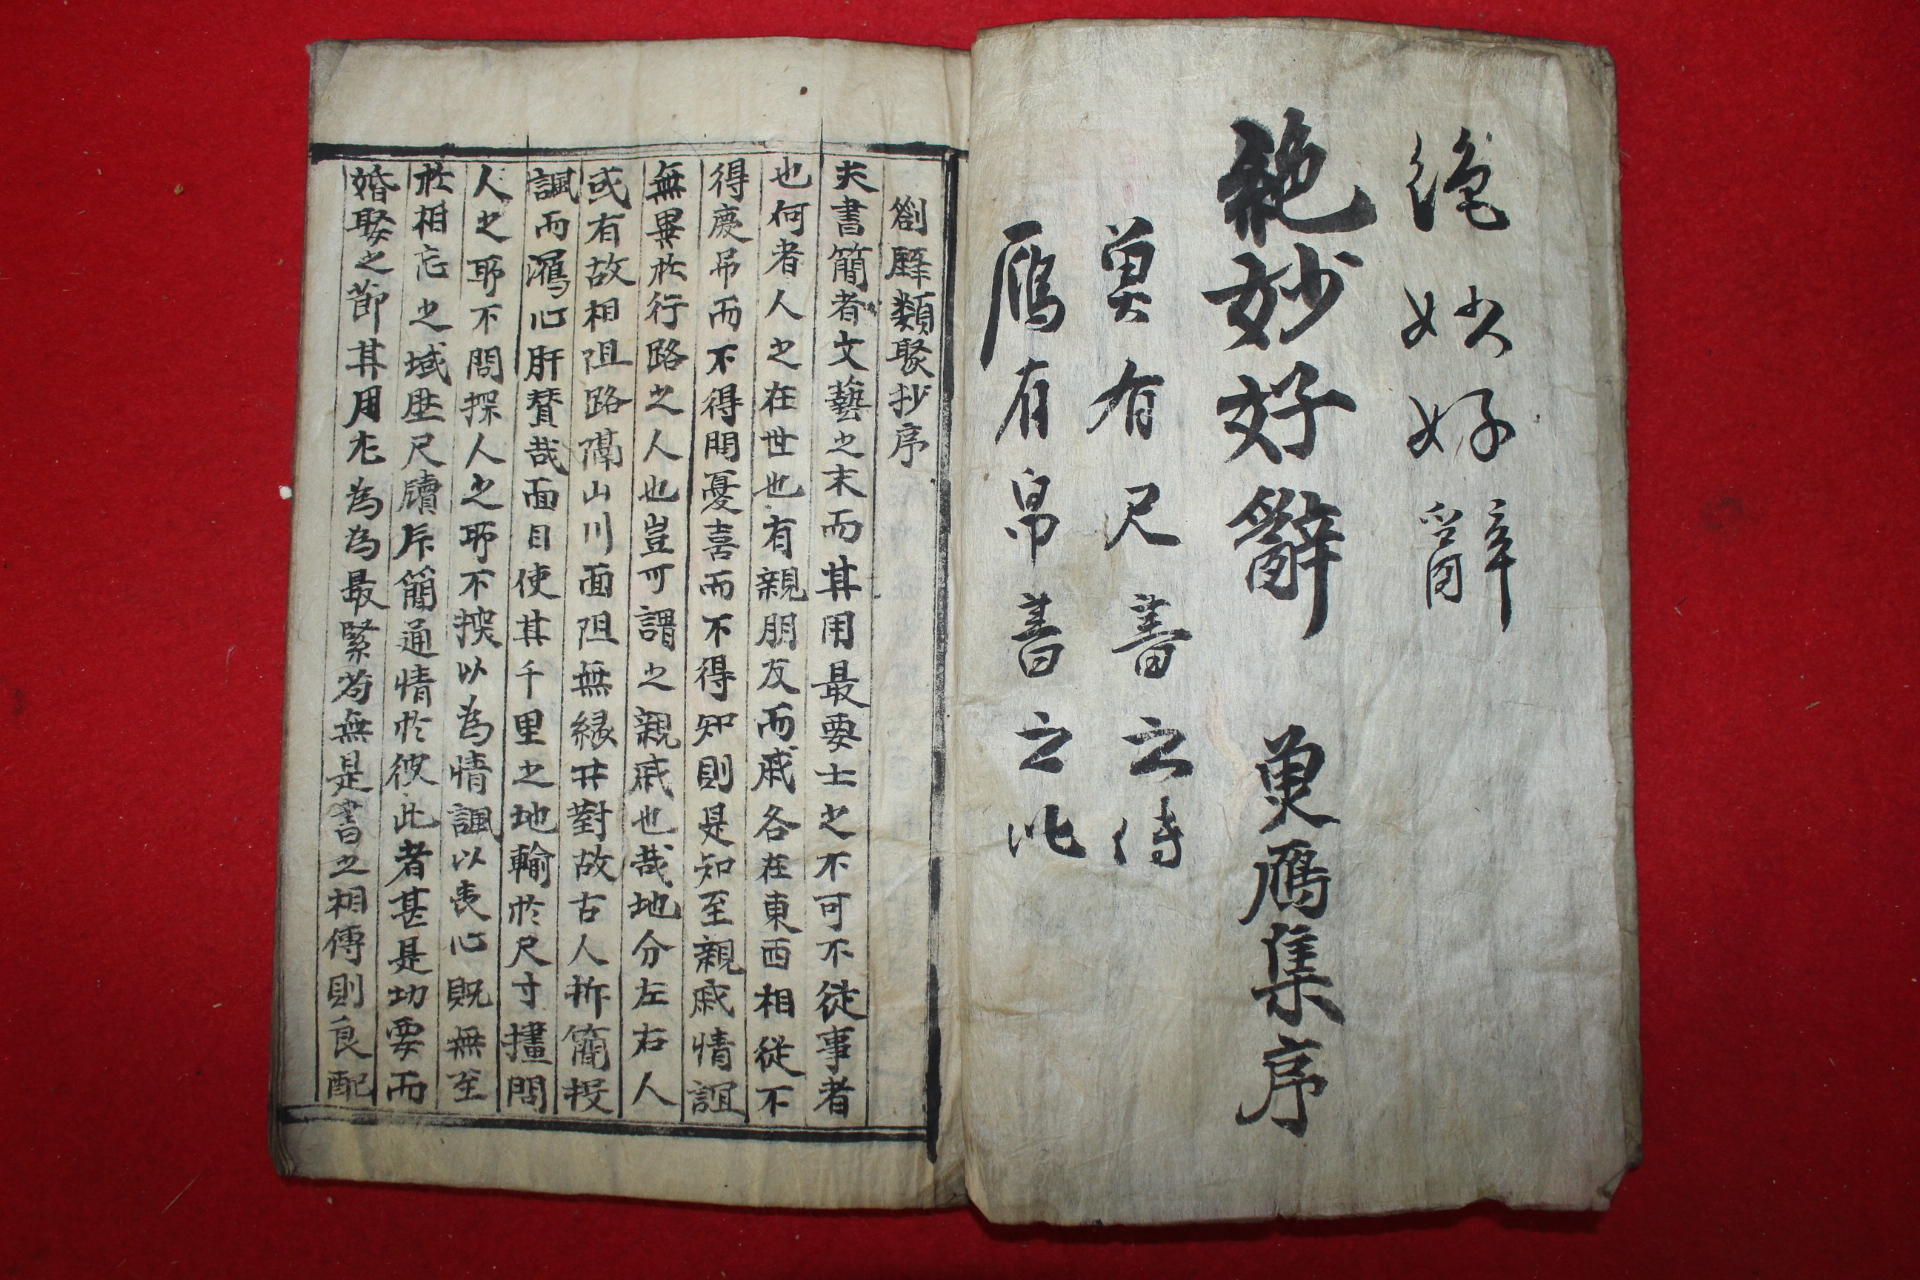 絶妙好辭
絶妙好辭 魚雁集序
魚有尺書之傳
鴈有帛書之
類聚抄序
夫書簡者文藝之末而其用最要士之不可不從事者
也何者人之在世也有親朋友而戚各在東西相從不
得慶吊而不得聞憂喜而不得知則是知至親戚情誼
無異於行路之人也豈可謂之親戚也哉地分左右人
或有故相阻路隔山川面阻無緣其對故古人折簡投
諷而瀉心肝替哉面目使其千里之地輸於尺寸摣問
人之耶不問探人之耶不探以為情諷以喪心旣無至
於相忘之域歷尺牘斥簡通情於彼此者甚是切要而
婚娶之節其用尤為為最緊若無是書之相傳則良配